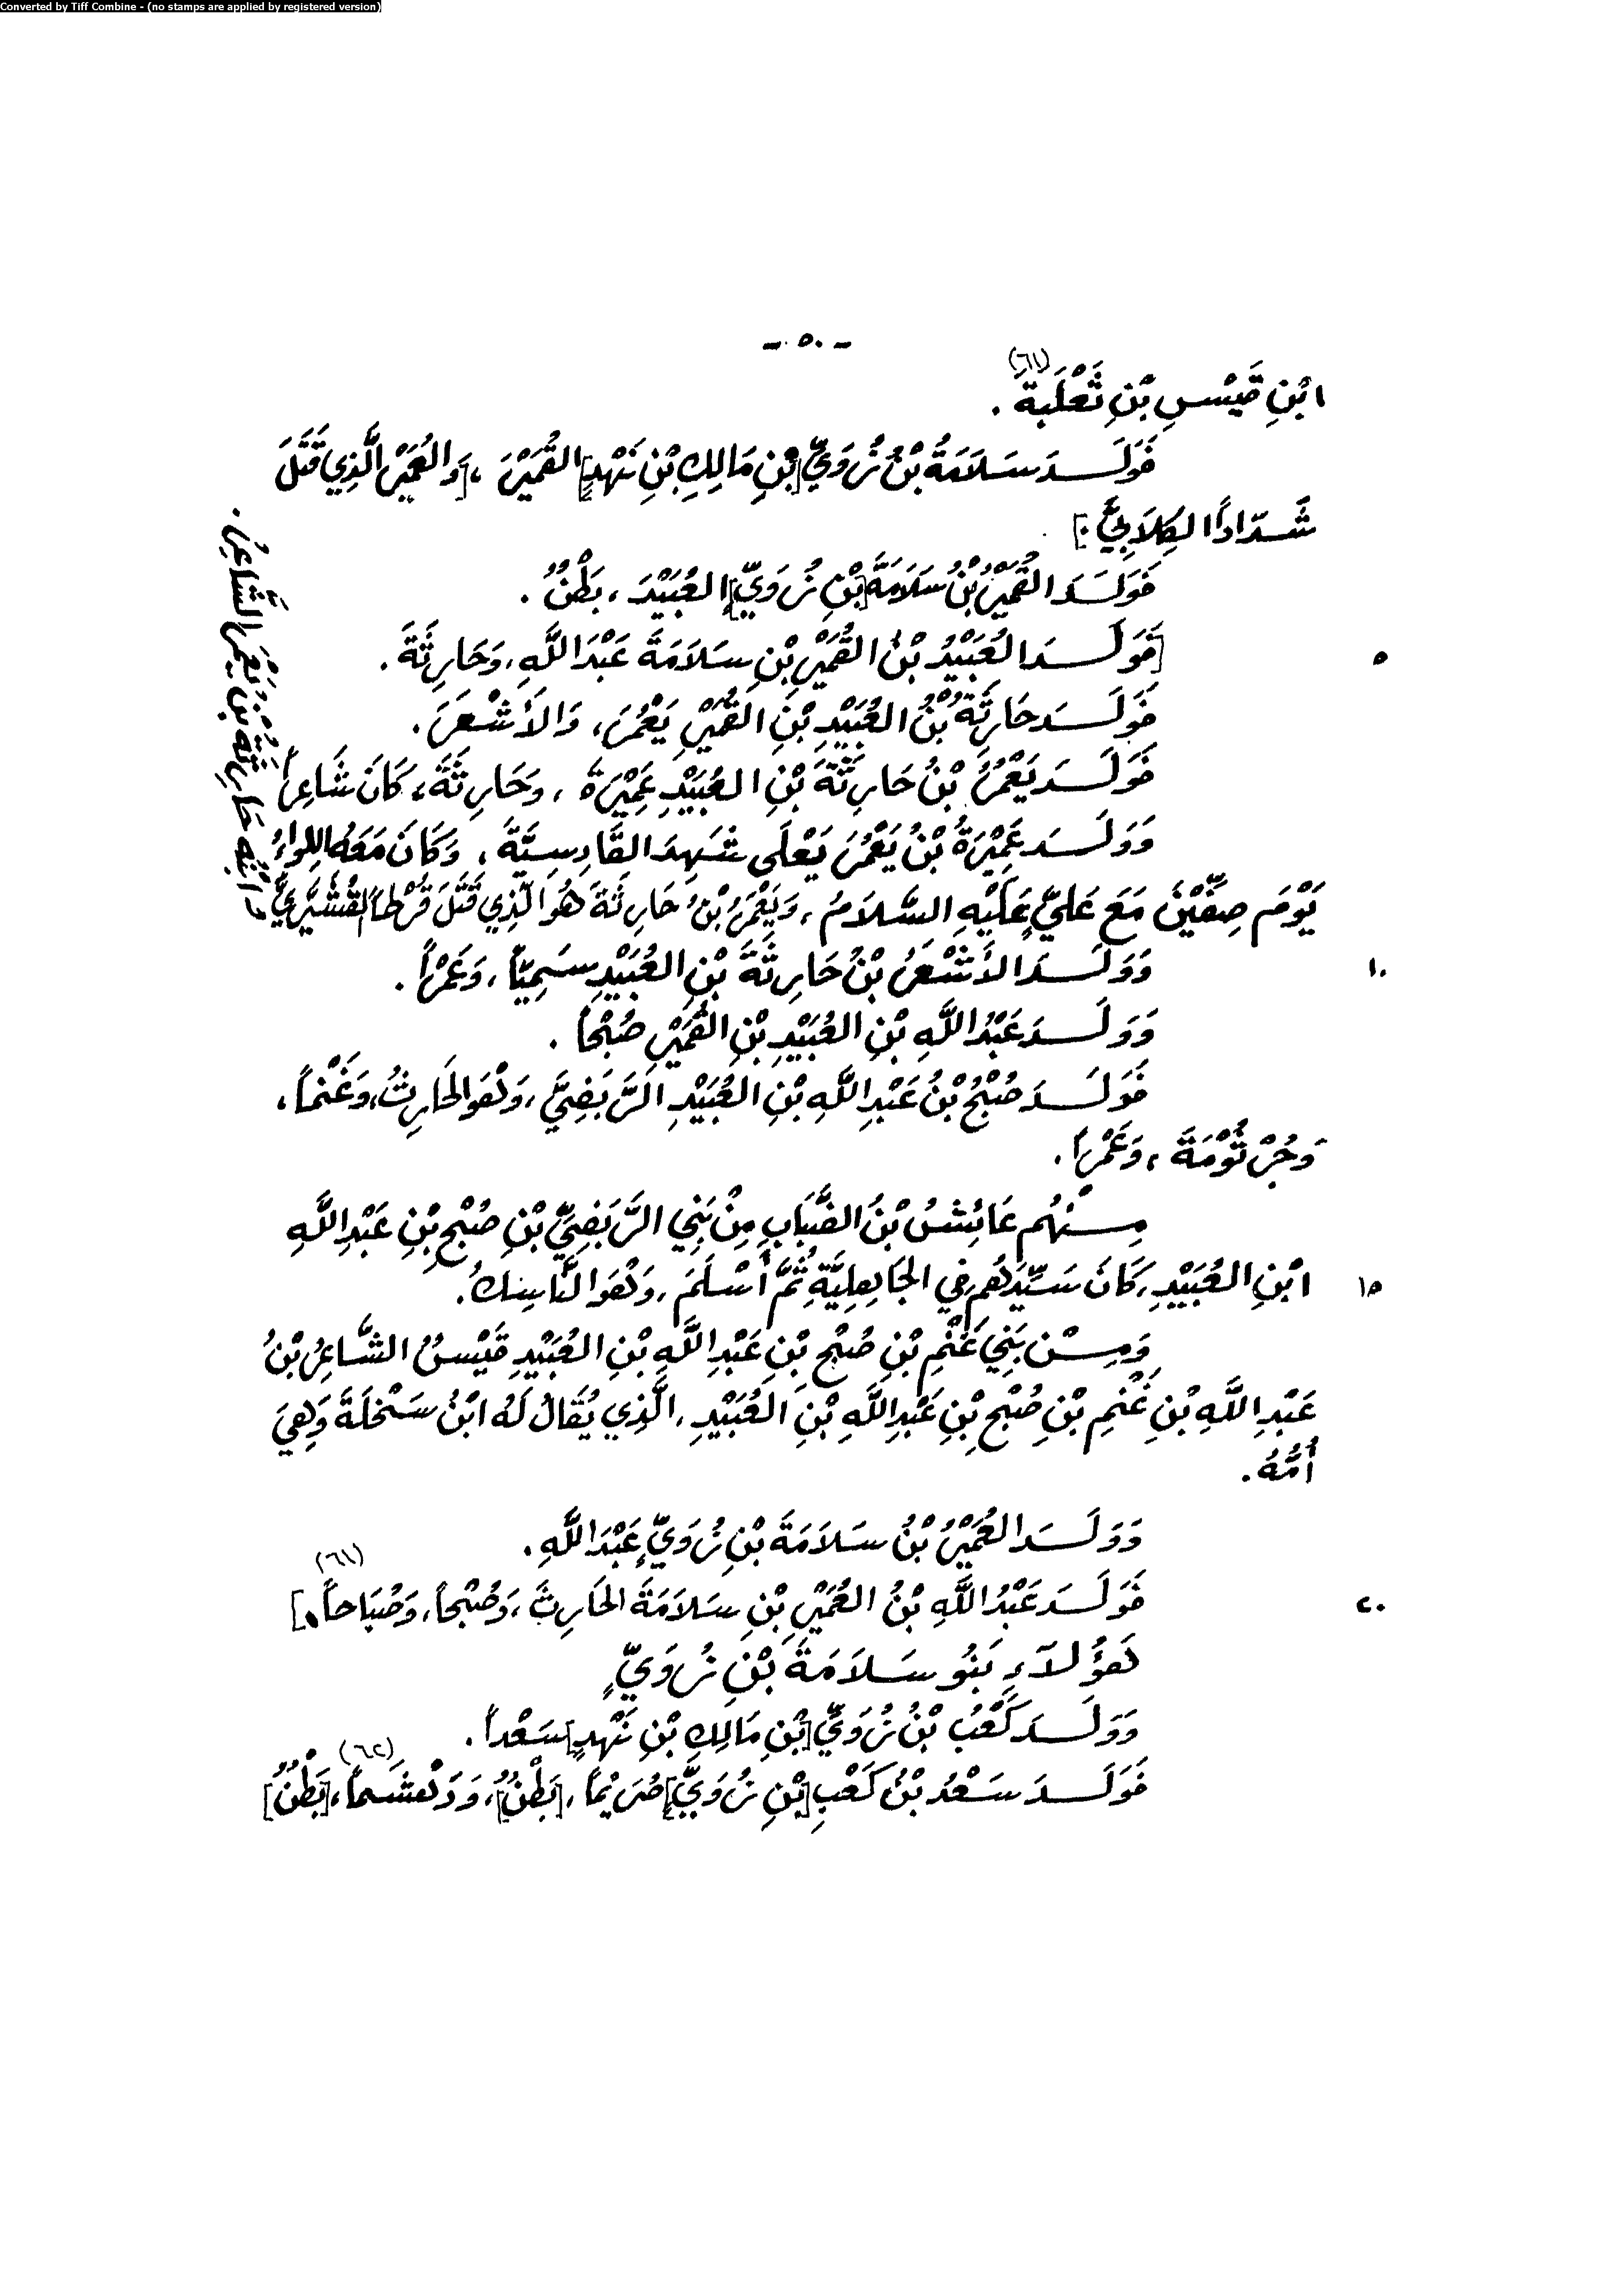 Converted by Tiff Combine - (no stamps are applied by registered version)
- ٥٠ -
ابْنِ قَيْسِ بْنِ ثَعْلَبَةَ (٦١) .
فَوَلَدَ سَلَامَةُ بْنُ زُوَيِّ [بْنِ مَالِكِ بْنِ نَهْدٍ] القُمَيْرَ ، [وَالعُمَيْرَ الَّذِي قَتَلَ
شَدَّاداً الكِلَابِيَّ .]
فَوَلَدَ القُمَيْرُ بْنُ سَلَامَةَ [بْنِ زُوَيِّ] العُبَيْدَ ، بَطْنٌ .
[فَوَلَدَ العُبَيْدُ بْنُ القُمَيْرِ بْنِ سَلَامَةَ عَبْدَ اللَّهِ ، وَحَارِثَةَ . ٥
فَوَلَدَ حَارِثَةُ بْنُ العُبَيْدِ بْنِ القُمَيْرِ يَعْمُرَ ، وَالأَشْعَرَ .
فَوَلَدَ يَعْمُرُ بْنُ حَارِثَةَ بْنِ العُبَيْدِ عَمِيْرَةَ ، وَحَارِثَةَ ، كَانَ شَاعِراً
وَوَلَدَ عَمِيْرَةُ بْنُ يَعْمُرَ يَعْلَى شَهِدَ القَادِسِيَّةَ ، وَكَانَ مَعَهُ اللِوَاءُ
يَوْمَ صِفِّيْنَ مَعَ عَلِيٍّ عَلَيْهِ السَّلَامُ ، وَيَعْمُرُ بْنُ حَارِثَةَ هُوَ الَّذِي قَتَلَ قُرْطاً القُشَيْرِيَّ
وَابْنُهُ حَارِثَةُ بْنُ يَعْمُرَ الشَّاعِرُ .
وَوَلَدَ الأَشْعَرُ بْنُ حَارِثَةَ بْنِ العُبَيْدِ سُمَيّاً ، وَعَمْراً . ١٠
وَوَلَدَ عَبْدُ اللَّهِ بْنِ العُبَيْدِ بْنِ القُمَيْرِ صُبْحاً .
فَوَلَدَ صُبْحُ بْنُ عَبْدِ اللَّهِ بْنِ العُبَيْدِ الرَّبَضِيَّ ، وَهُوَ الحَارِثُ ، وَغَنْماً ،
وَجُرْثُوْمَةَ ، وَعَمْراً .
مِنْهُم عَائِشُ بْنُ الضَّبَابِ مِنْ بَنِي الرَّبَضِيِّ بْنِ صُبْحِ بْنِ عَبْدِ اللَّهِ
ابْنِ العُبَيْدِ ، كَانَ سَيِّدَهُم فِي الجَاهِلِيَّةِ ثُمَّ أَسْلَمَ ، وَهُوَ النَّاسِكُ . ١٥
وَمِنْ بَنِي غَنْمِ بْنِ صُبْحِ بْنِ عَبْدِ اللَّهِ بْنِ العُبَيْدِ قَيْسُ الشَّاعِرُ بْنُ
عَبْدِ اللَّهِ بْنِ غَنْمِ بْنِ صُبْحِ بْنِ عَبْدِ اللَّهِ بْنِ العُبَيْدِ ، الَّذِي يُقَالُ لَهُ ابْنُ سَخْلَةَ وَهِيَ
أُمُّهُ .
وَوَلَدَ العُمَيْرُ بْنُ سَلَامَةَ بْنِ زُوَيٍّ عَبْدَ اللَّهِ .
فَوَلَدَ عَبْدُ اللَّهِ بْنُ العُمَيْرِ بْنِ سَلَامَةَ الحَارِثَ ، وَصُبْحاً ، وَصُبَاحاً .] (٦١) ٢٠
هَؤُلَاءِ بَنُو سَلَامَةَ بْنِ زُوَيٍّ
وَوَلَدَ كَعْبُ بْنُ زُوَيِّ [بْنِ مَالِكِ بْنِ نَهْدٍ] سَعْداً .
فَوَلَدَ سَعْدُ بْنُ كَعْبِ [بْنِ زُوَيٍّ] صُرَيْماً ، [بَطْنٌ] ، وَدَهْشَماً (٦٢) ، [بَطْنٌ]